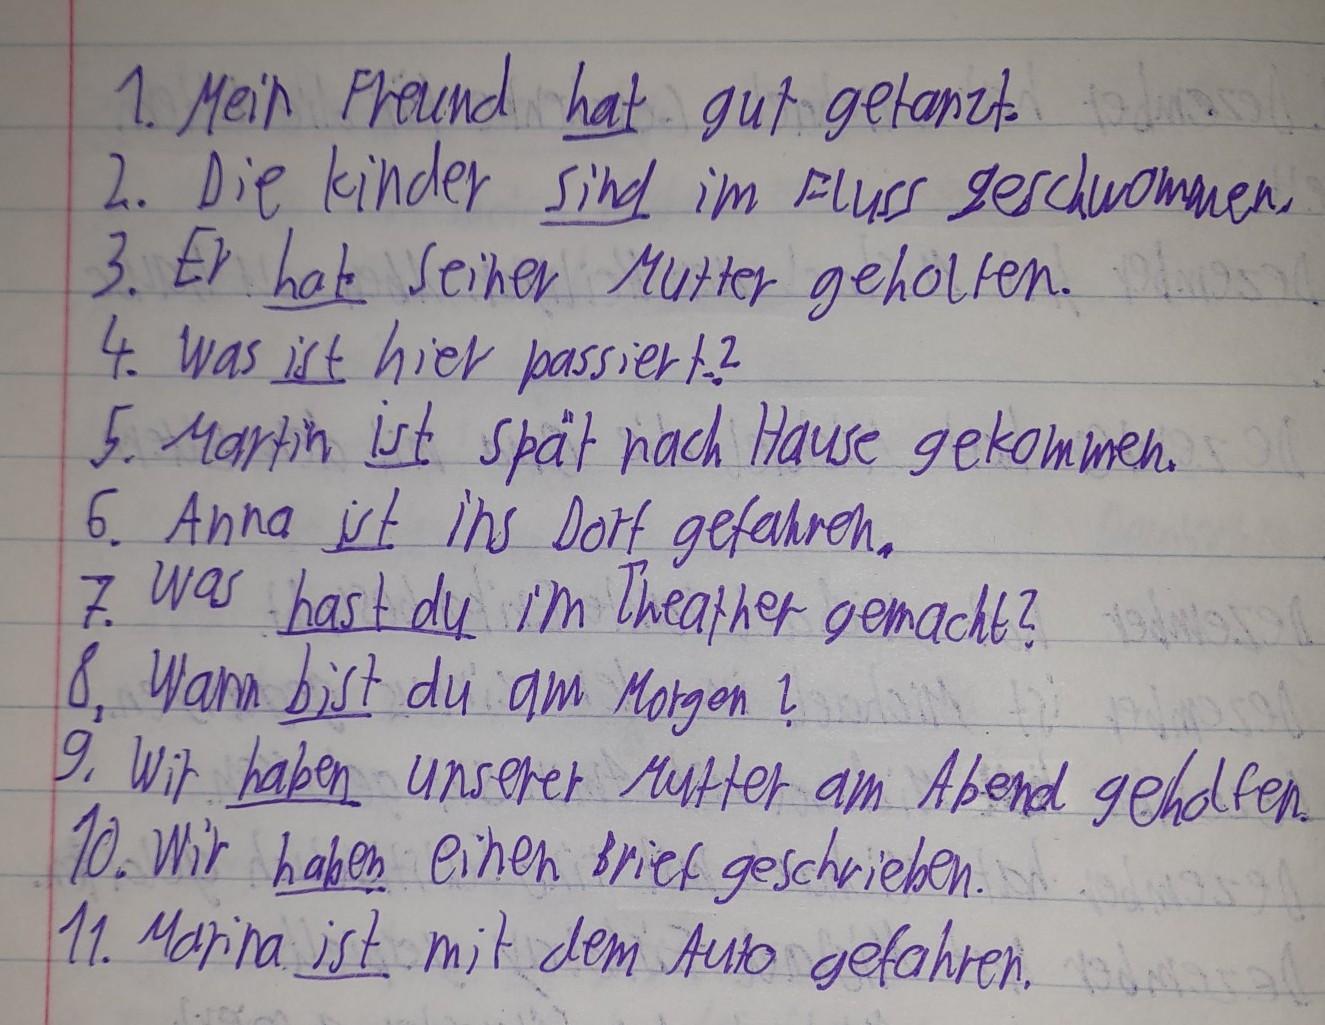 1. Mein Freund hat gut getanzt.
2. Die kinder sind im Fluss geschwommen.
3. Er hat seiner Mutter geholfen.
4. Was ist hier passiert?
5. Martin ist spät nach Hause gekommen.
6. Anna ist ins Dorf gefahren.
7. Was hast du im Theather gemacht?
8. Wann bist du am Morgen?
9. Wir haben unserer Mutter am Abend geholfen.
10. Wir haben einen Brief geschrieben.
11. Marina ist mit dem Auto gefahren.